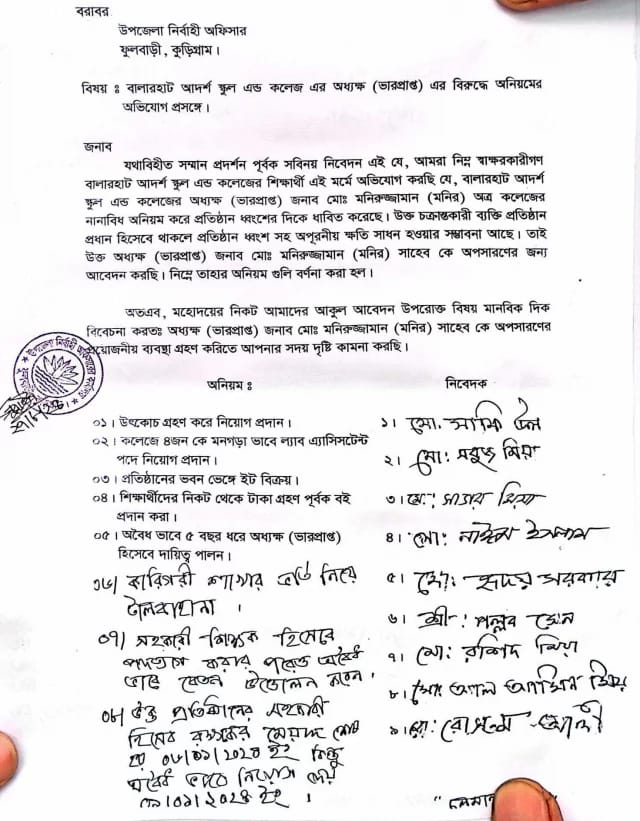 বরাবর
উপজেলা নির্বাহী অফিসার
ফুলবাড়ী, কুড়িগ্রাম।
বিষয় ঃ বালারহাট আদর্শ স্কুল এন্ড কলেজ এর অধ্যক্ষ (ভারপ্রাপ্ত) এর বিরুদ্ধে অনিয়মের
অভিযোগ প্রসঙ্গে।
জনাব
যথাবিহীত সম্মান প্রদর্শন পূর্বক সবিনয় নিবেদন এই যে, আমরা নিম্ন স্বাক্ষরকারীগণ
বালারহাট আদর্শ স্কুল এন্ড কলেজের শিক্ষার্থী এই মর্মে অভিযোগ করছি যে, বালারহাট আদর্শ
স্কুল এন্ড কলেজের অধ্যক্ষ (ভারপ্রাপ্ত) জনাব মোঃ মনিরুজ্জামান (মনির) অত্র কলেজের
নানাবিধ অনিয়ম করে প্রতিষ্ঠান ধ্বংশের দিকে ধাবিত করেছে। উক্ত চক্রান্তকারী ব্যক্তি প্রতিষ্ঠান
প্রধান হিসেবে থাকলে প্রতিষ্ঠান ধ্বংশ সহ অপূরনীয় ক্ষতি সাধন হওয়ার সম্ভাবনা আছে। তাই
উক্ত অধ্যক্ষ (ভারপ্রাপ্ত) জনাব মোঃ মনিরুজ্জামান (মনির) সাহেব কে অপসারণের জন্য
আবেদন করছি। নিম্নে তাহার অনিয়ম গুলি বর্ণনা করা হল।
অতএব, মহোদয়ের নিকট আমাদের আকুল আবেদন উপরোক্ত বিষয় মানবিক দিক
বিবেচনা করতঃ অধ্যক্ষ (ভারপ্রাপ্ত) জনাব মোঃ মনিরুজ্জামান (মনির) সাহেব কে অপসারণের
প্রয়োজনীয় ব্যবস্থা গ্রহণ করিতে আপনার সদয় দৃষ্টি কামনা করছি।
উপজেলা নির্বাহী অফিসারের কার্যালয়
অনিয়ম ঃ
০১। উৎকোচ গ্রহণ করে নিয়োগ প্রদান।
০২। কলেজে ৪জন কে মনগড়া ভাবে ল্যাব এ্যাসিসটেন্ট
পদে নিয়োগ প্রদান।
০৩। প্রতিষ্ঠানের ভবন ভেঙ্গে ইট বিক্রয়।
০৪। শিক্ষার্থীদের নিকট থেকে টাকা গ্রহণ পূর্বক বই
প্রদান করা।
০৫। অবৈধ ভাবে ৫ বছর ধরে অধ্যক্ষ (ভারপ্রাপ্ত)
হিসেবে দায়িত্ব পালন।
০৬। কারিগরী শাখার ভর্তি নিয়ে
টালবাহানা।
০৭) সহকারী শিক্ষক হিসেবে
পদত্যাগ করার পরেও অবৈধ
ভাবে বেতন উত্তোলন করেন।
০৮) উক্ত প্রতিষ্ঠানের সহকারী
হিসেবে মেয়াদ শেষ
হয় ০৮/০১/২০২৩ ইং কিন্তু
অবৈধ ভাবে নিয়োগ দেয়
/০১/২০২৪ ইং।
নিবেদক
১। মো.
২। মোঃ সবুজ মিয়া
৩। মোঃ সাত্তার মিয়া
৪। মোঃ নাঈম ইসলাম
৫। মোঃ হৃদয় সরকার
৬। শ্রীঃ পল্লব সেন
৭। মোঃ রশিদ মিয়া
৮। মোঃ আল আমিন মিয়া
৯। মোঃ রোস্তম আলী